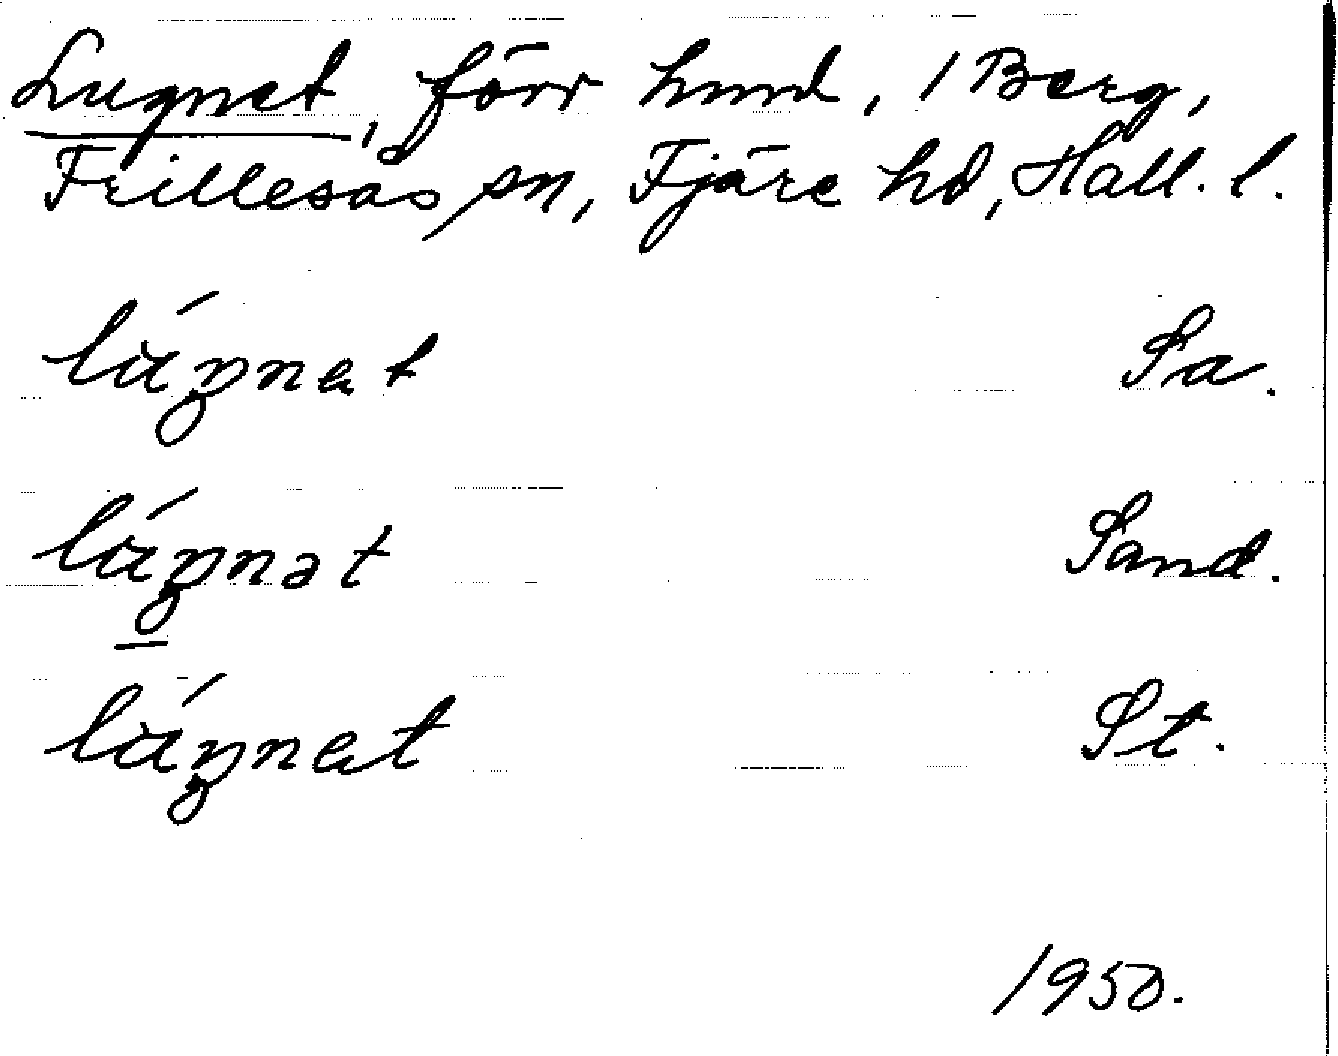 Lugnet, förr hmd, 1 Berg,
Frillesås sn, Fjäre hd, Hall. l.
lúŋnet Sa.
lúŋnət Sand.
lúŋnet St.
1950.